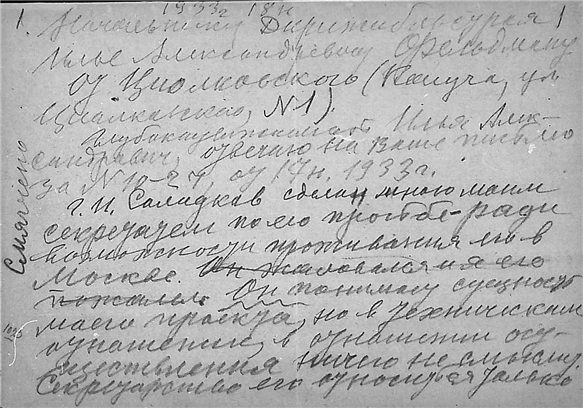 1933г 18 н
1. Начальнику Дирижаблестроя
Илье Александровичу Фельдману
От Циолковского (Калуга, ул
Циолковского, N 1).
Глубокоуважаемый Илья Алек-
сандрович, отвечаю на Ваше письмо
за N 10-27 от 17 н. 1933 г.
Г. И. Солодков сделан мною моим
секретарем по его просьбе - ради
возможности проживания его в
Москве. Он жаловался и я его
пожалел. Он понимает сущность
моего проекта, но в техническом
отношении, в отношении осу-
ществления ничего не смыслит.
Секретарство его относится только
Смягчено